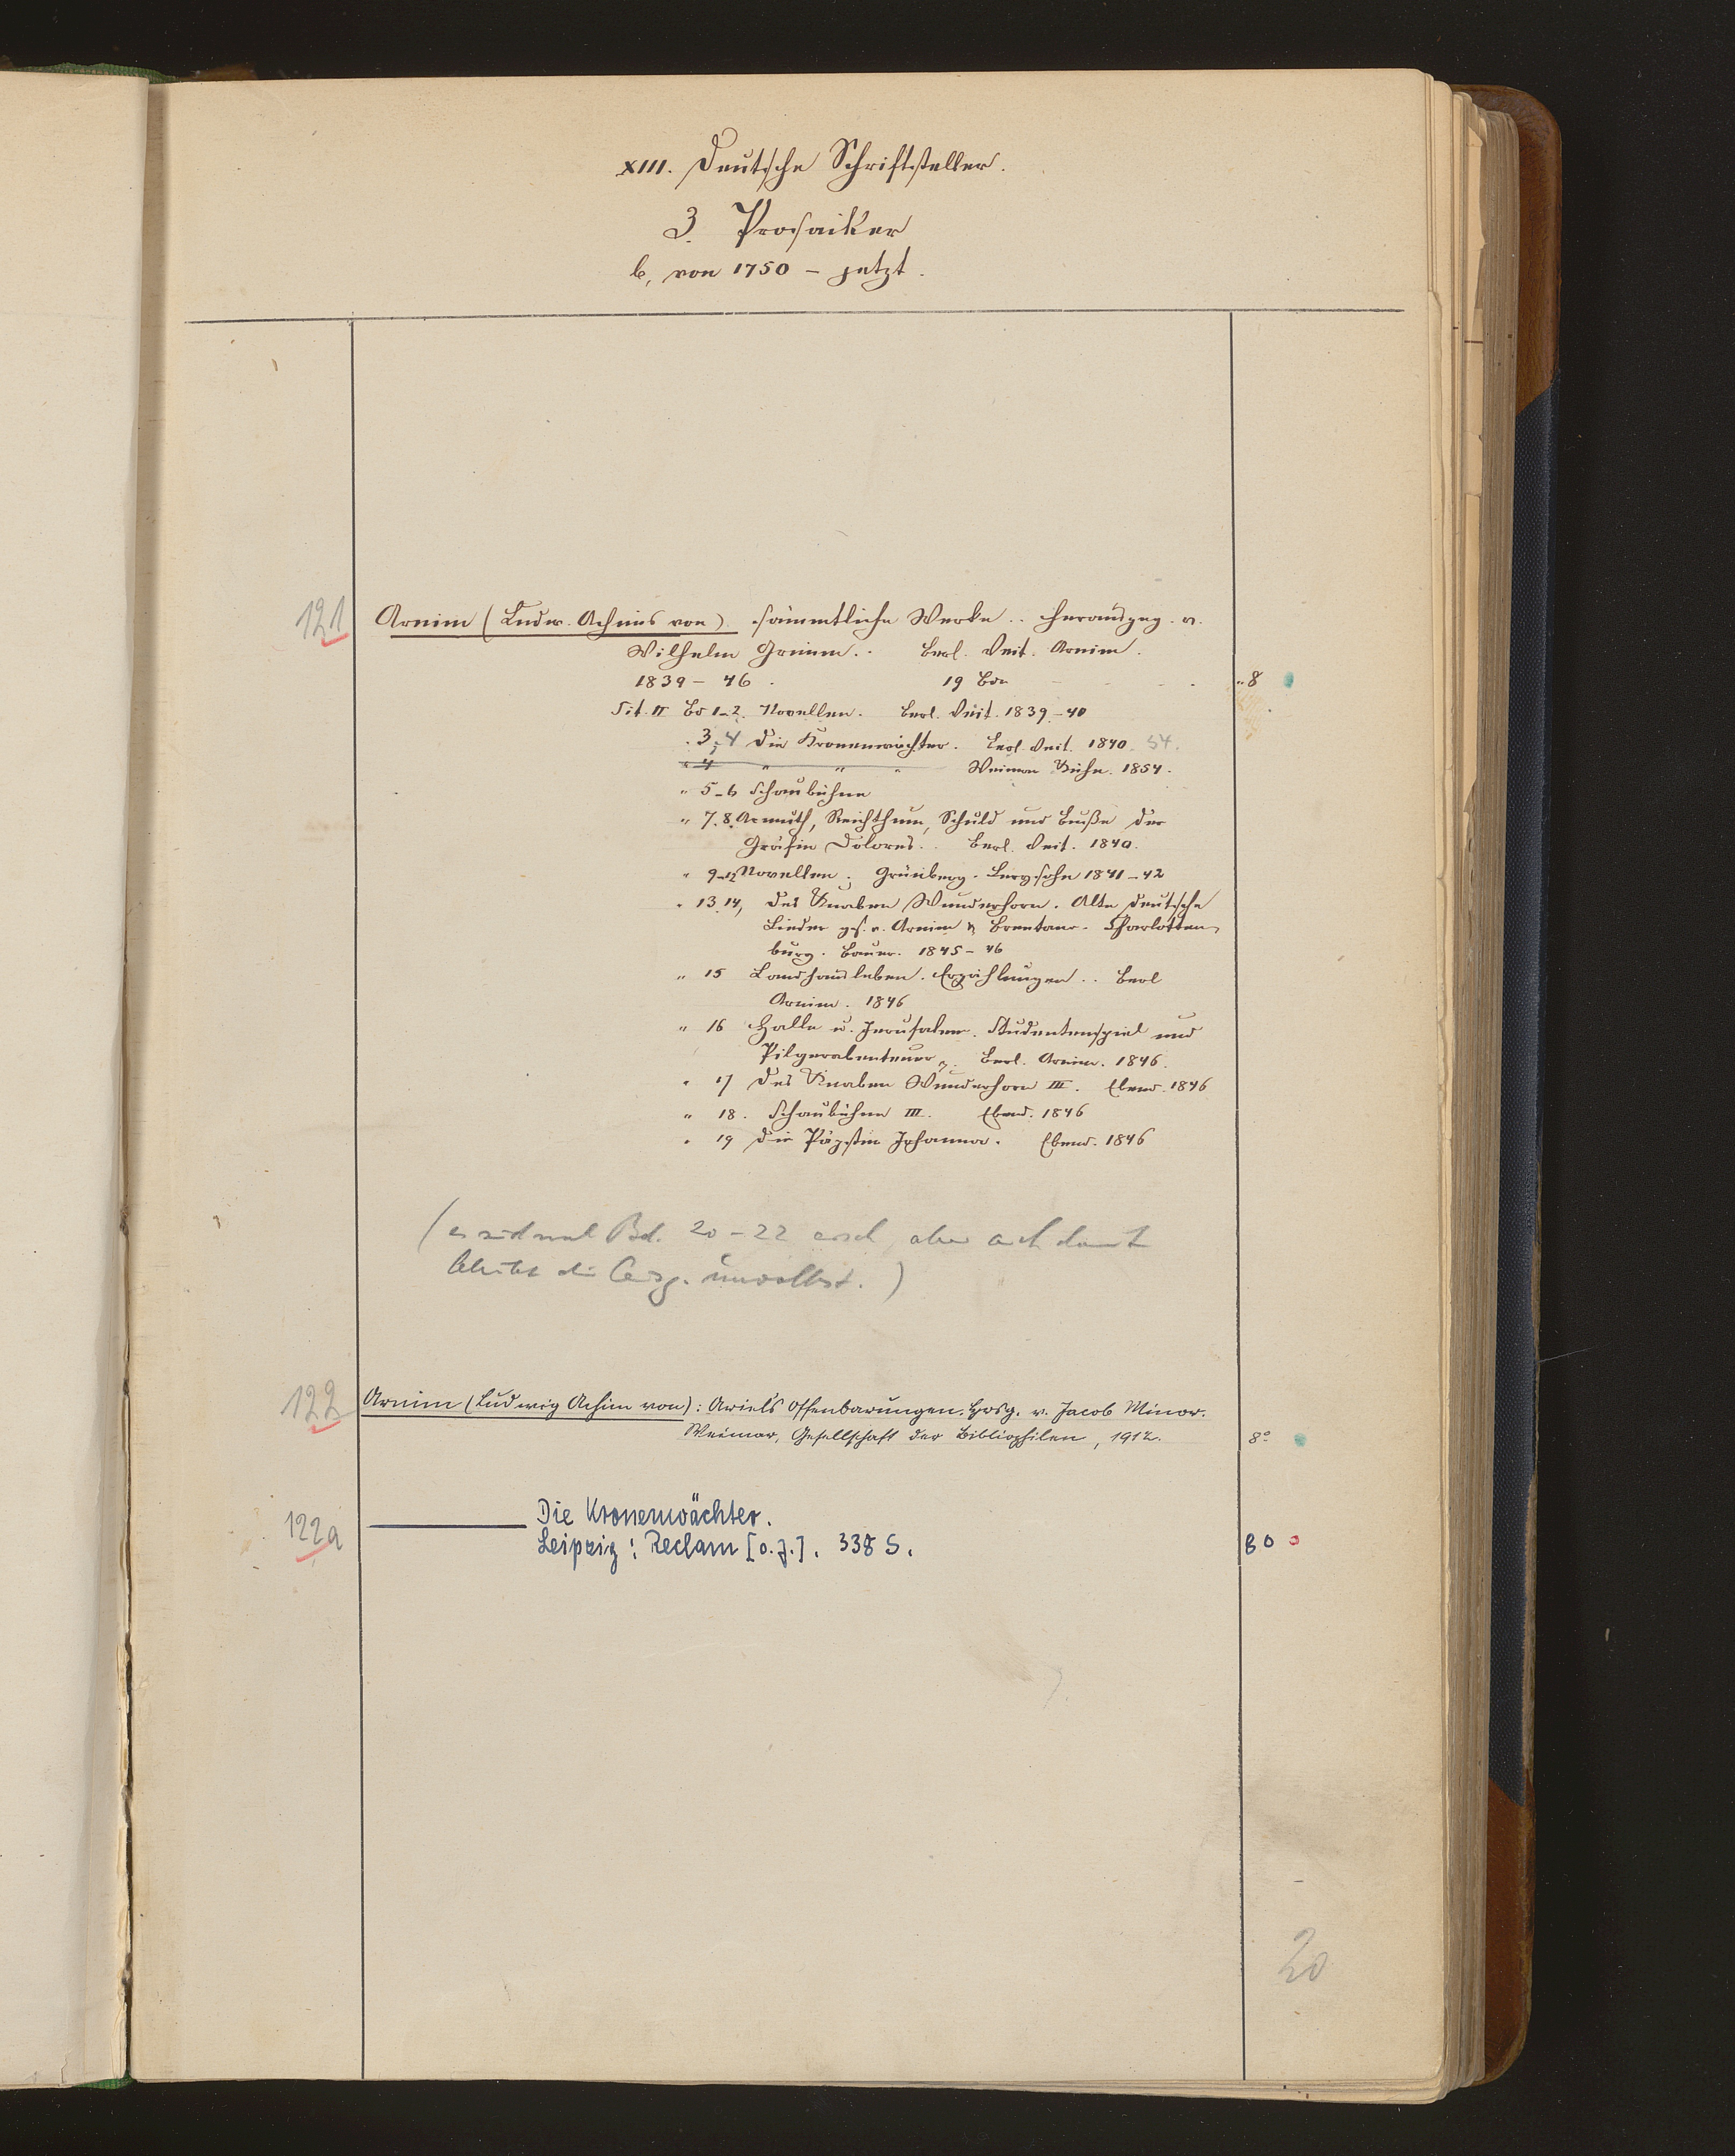 XIII. Deutsche Schriftsteller.
3. Prosaiker
b, von 1750 – jetzt.
121 Arnim (Ludw. Achims von). sämmtliche Werke .. herausgeg. v.
Wilhelm Grimm .. Berl. Veit. Arnim.
1839 – 46. 19 Bde 8
Tit. II Bd 1–2. Novellen. Berl. Veit. 1839–40
" 3, 4 die Kronenwächter. Berl. Veit. 1840. 54.
" 4 " " " Weimar Kühn. 1854.
" 5–6 Schaubühne
" 7. 8. Armuth, Reichthum, Schuld und Buße der
Gräfin Dolores .. Berl. Veit. 1840.
" 9–12 Novellen. Grünberg. Levysohn 1841–42
" 13. 14, des Knaben Wunderhorn. Alte deutsche
Lieder ges. v. Arnim & Brentano. Charlotten
burg. Bauer. 1845–46
" 15 Landhausleben. Erzählungen .. Berl
Arnim. 1846
" 16 Halle u. Jerusalem. Studentenspiel und
Pilgerabenteuer. Berl. Arnim. 1846.
" 17 des Knaben Wunderhorn III. Ebend. 1846
" 18. Schaubühne III. Ebend. 1846
" 19 die Päpstin Johanna. Ebend. 1846
(es sind Bd. 20–22 ersch, aber auch damit
bleibt die Ausg. unvollst.)
122 Arnim (Ludwig Achim von): Ariel's Offenbarungen. Hrsg. v. Jacob Minor.
Weimar, Gesellschaft der Bibliophilen, 1912. 8°
122a ——— Die Kronenwächter.
Leipzig: Reclam [o.J.]. 338 S. 8°
20